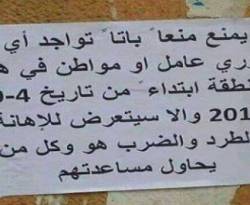 يمنع منعاً باتاً تواجد أي
وري عامل او مواطن في ه
نطقة ابتداءً من تاريخ 4-0
201 والا سيتعرض للإهانة
لطرد والضرب هو وكل من
يحاول مساعدتهم